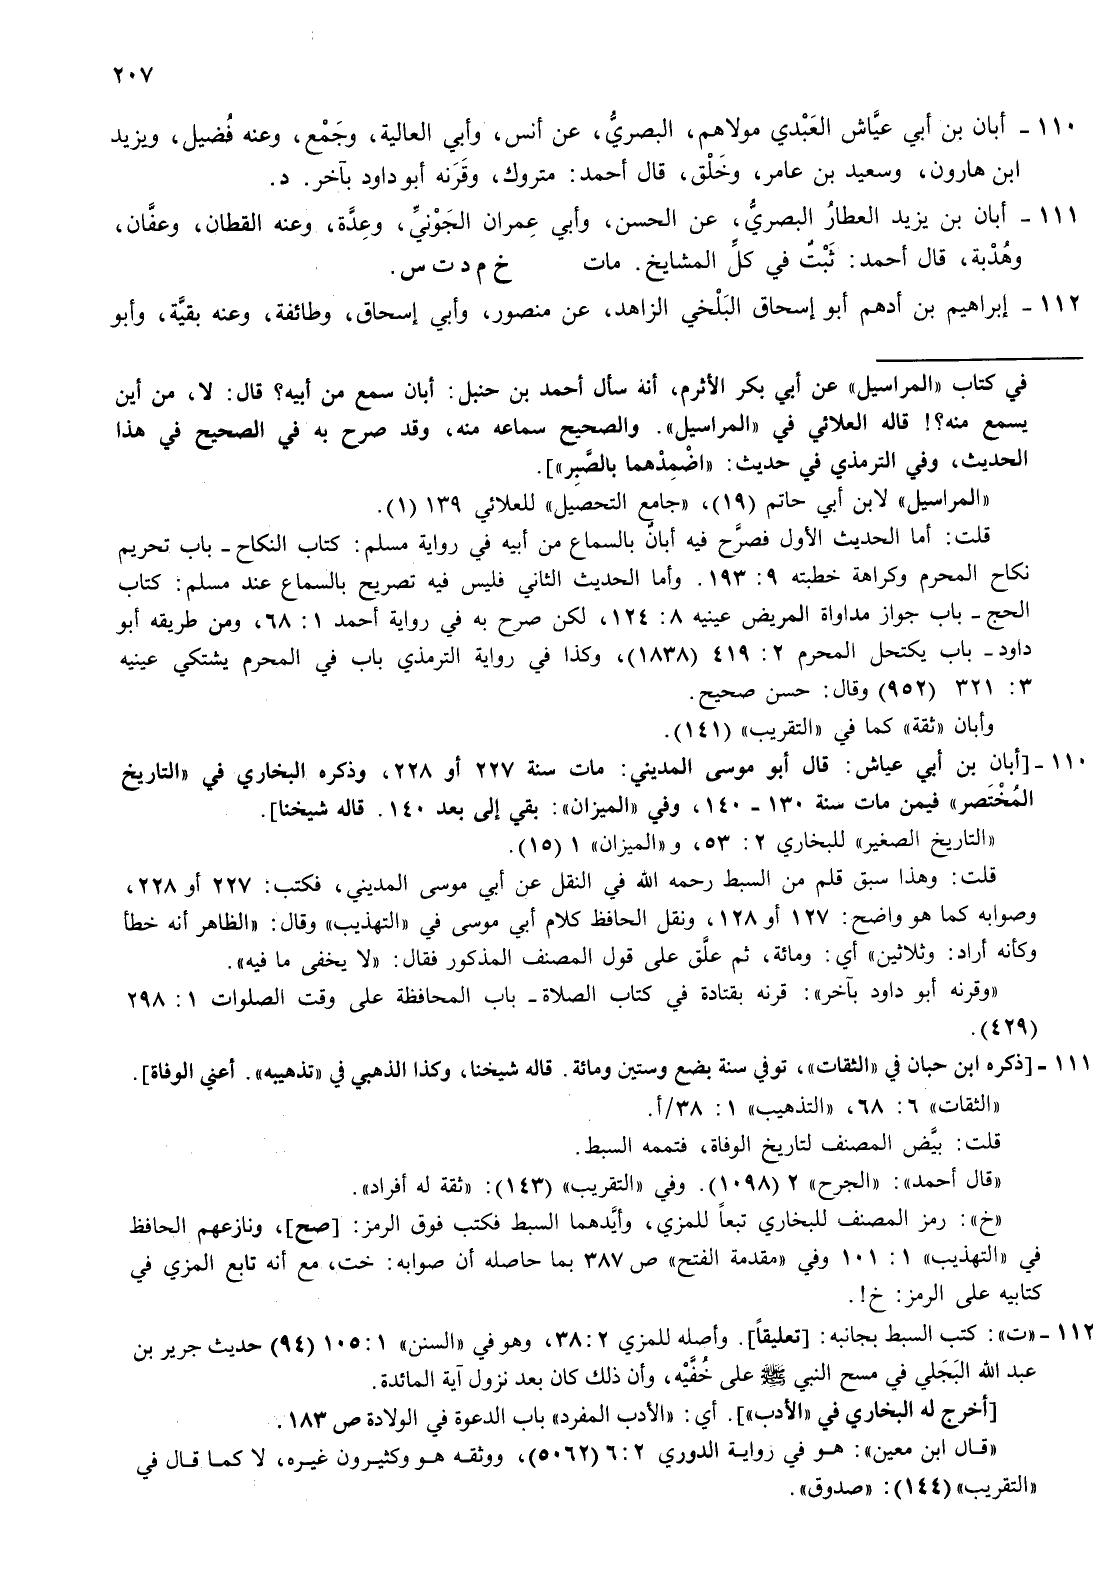 ٢٠٧
١١٠ ـ أبان بن أبي عيَّاش العَبْدي مولاهم، البصريُّ، عن أنس، وأبي العالية، وجَمْع، وعنه فُضيل، ويزيد
ابن هارون، وسعيد بن عامر، وخَلْق، قال أحمد: متروك، وقَرَنه أبو داود بآخر. د.
١١١ ـ أبان بن يزيد العطارُ البصريُّ، عن الحسن، وأبي عِمران الجَوْنيِّ، وعِدَّة، وعنه القطان، وعفَّان،
وهُدْبة، قال أحمد: ثَبْتٌ في كلِّ المشايخ. مات خ م د ت س.
١١٢ ـ إبراهيم بن أدهم أبو إسحاق البَلْخي الزاهد، عن منصور، وأبي إسحاق، وطائفة، وعنه بقيَّة، وأبو
في كتاب «المراسيل» عن أبي بكر الأثرم، أنه سأل أحمد بن حنبل: أبان سمع من أبيه؟ قال: لا، من أين
يسمع منه؟! قاله العلائي في «المراسيل». والصحيح سماعه منه، وقد صرح به في الصحيح في هذا
الحديث، وفي الترمذي في حديث: «اضْمِدْهما بالصَّبِر»].
«المراسيل» لابن أبي حاتم (١٩)، «جامع التحصيل» للعلائي ١٣٩ (١).
قلت: أما الحديث الأول فصرَّح فيه أبانٌ بالسماع من أبيه في رواية مسلم: كتاب النكاح ـ باب تحريم
نكاح المحرم وكراهة خطبته ٩: ١٩٣. وأما الحديث الثاني فليس فيه تصريح بالسماع عند مسلم: كتاب
الحج ـ باب جواز مداواة المريض عينيه ٨: ١٢٤، لكن صرح به في رواية أحمد ١: ٦٨، ومن طريقه أبو
داود ـ باب يكتحل المحرم ٢: ٤١٩ (١٨٣٨)، وكذا في رواية الترمذي باب في المحرم يشتكي عينيه
٣: ٣٢١ (٩٥٢) وقال: حسن صحيح.
وأبان «ثقة» كما في «التقريب» (١٤١).
١١٠ ـ [أبان بن أبي عياش: قال أبو موسى المديني: مات سنة ٢٢٧ أو ٢٢٨، وذكره البخاري في «التاريخ
المُخْتَصر» فيمن مات سنة ١٣٠ ـ ١٤٠، وفي «الميزان»: بقي إلى بعد ١٤٠. قاله شيخنا].
«التاريخ الصغير» للبخاري ٢: ٥٣، و«الميزان» ١ (١٥).
قلت: وهذا سبق قلم من السبط رحمه الله في النقل عن أبي موسى المديني، فكتب: ٢٢٧ أو ٢٢٨،
وصوابه كما هو واضح: ١٢٧ أو ١٢٨، ونقل الحافظ كلام أبي موسى في «التهذيب» وقال: «الظاهر أنه خطأ
وكأنه أراد: وثلاثين» أي: ومائة، ثم علَّق على قول المصنف المذكور فقال: «لا يخفى ما فيه».
«وقرنه أبو داود بآخر»: قرنه بقتادة في كتاب الصلاة ـ باب المحافظة على وقت الصلوات ١: ٢٩٨
(٤٢٩).
١١١ ـ [ذكره ابن حبان في «الثقات»، توفي سنة بضع وستين ومائة. قاله شيخنا، وكذا الذهبي في «تذهيبه». أعني الوفاة].
«الثقات» ٦: ٦٨، «التذهيب» ١: ٣٨/أ.
قلت: بيَّض المصنف لتاريخ الوفاة، فتممه السبط.
«قال أحمد»: «الجرح» ٢ (١٠٩٨). وفي «التقريب» (١٤٣): «ثقة له أفراد».
«خ»: رمز المصنف للبخاري تبعاً للمزي، وأيَّدهما السبط فكتب فوق الرمز: [صح]، ونازعهم الحافظ
في «التهذيب» ١: ١٠١ وفي «مقدمة الفتح» ص ٣٨٧ بما حاصله أن صوابه: خت، مع أنه تابع المزي في
كتابيه على الرمز: خ!.
١١٢ ـ «ت»: كتب السبط بجانبه: [تعليقاً]. وأصله للمزي ٢: ٣٨، وهو في «السنن» ١: ١٠٥ (٩٤) حديث جرير بن
عبد الله البَجَلي في مسح النبي ﷺ على خُفَّيْه، وأن ذلك كان بعد نزول آية المائدة.
[أخرج له البخاري في «الأدب»]. أي: «الأدب المفرد» باب الدعوة في الولادة ص ١٨٣.
«قال ابن معين»: هو في رواية الدوري ٢: ٦ (٥٠٦٢)، ووثقه هو وكثيرون غيره، لا كما قال في
«التقريب» (١٤٤): «صدوق».